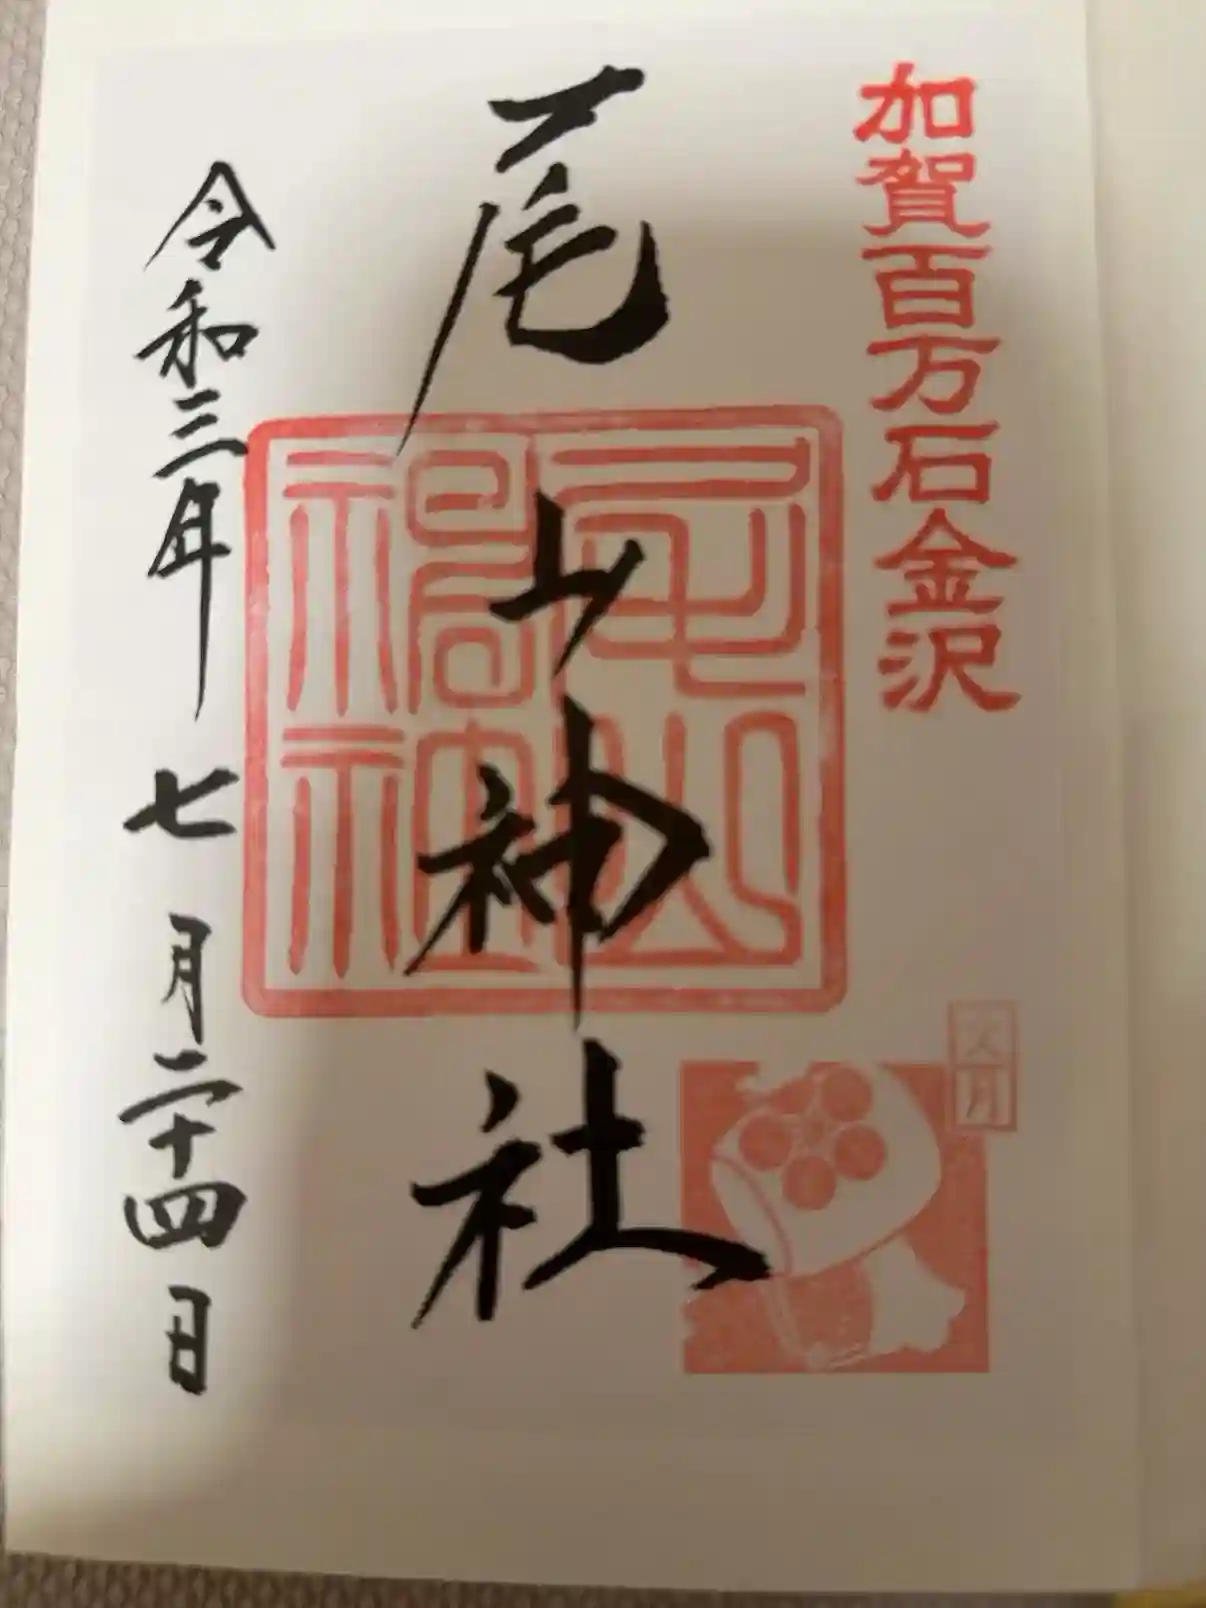 加賀百万石金沢
尾山神社
尾山神社
文月
令和三年 七月二十四日